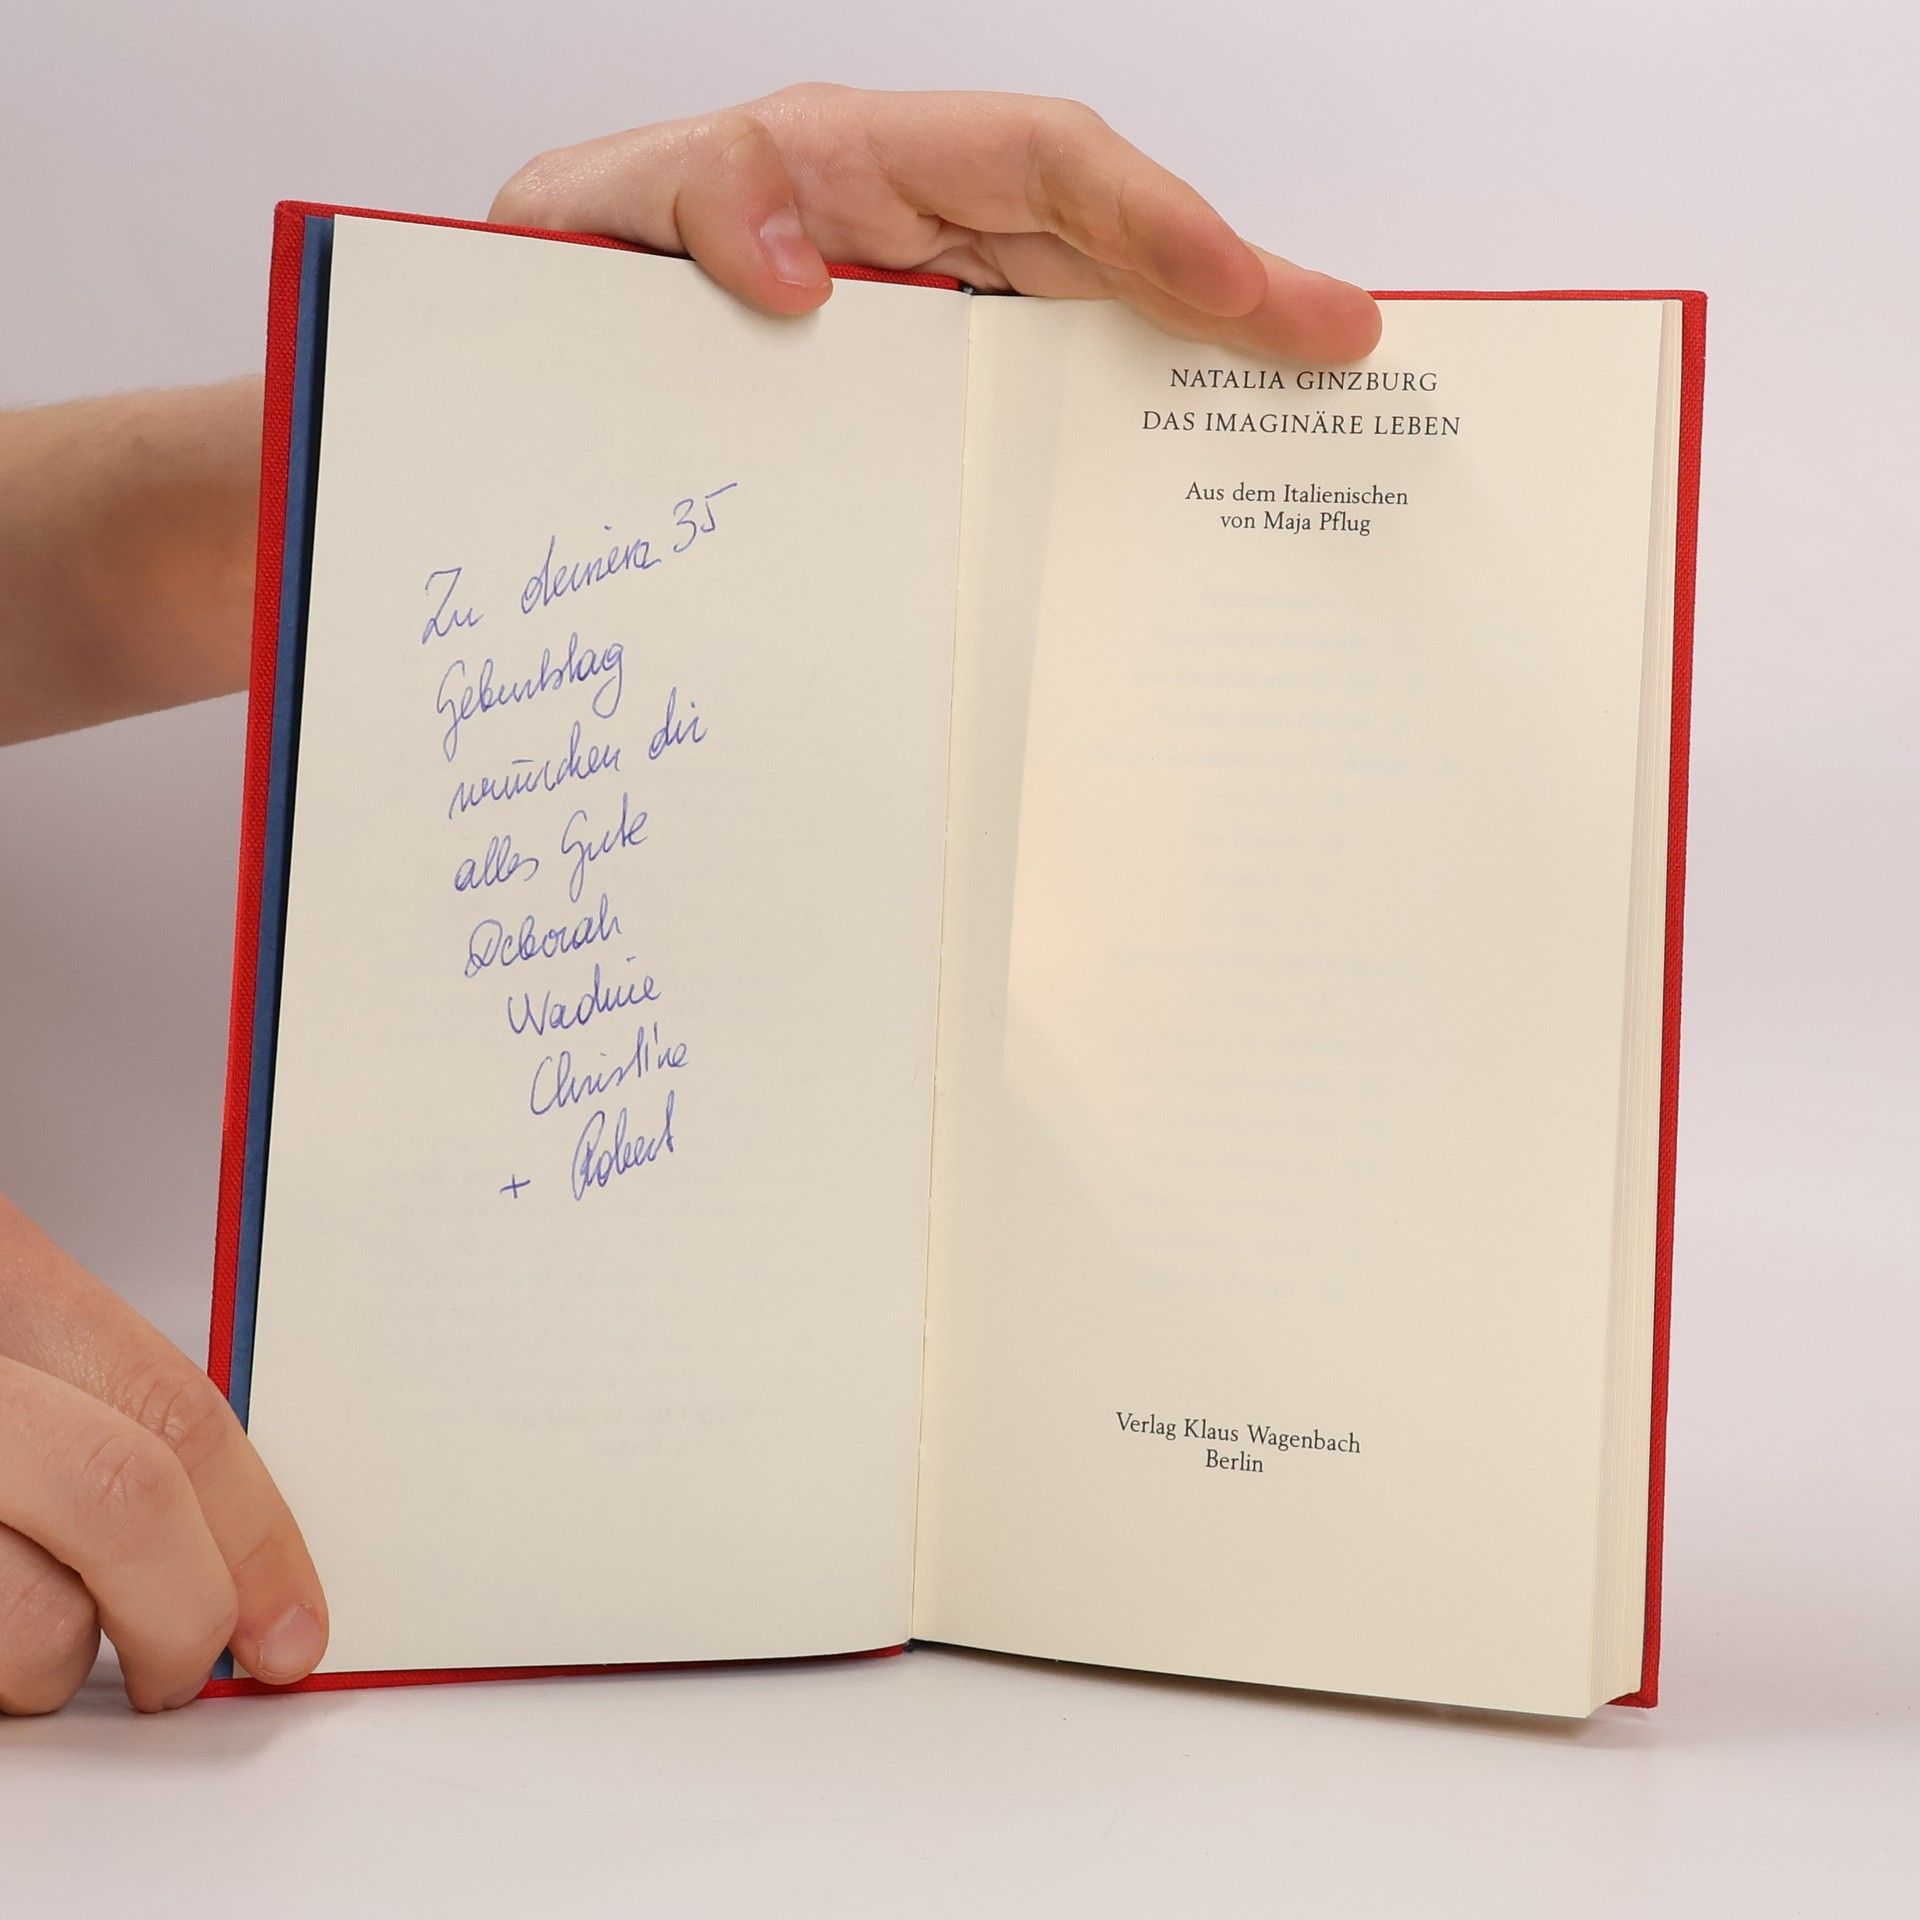 Zu deinem 35
Geburtstag
wünschen dir
alles Gute
Deborah
Christine
+ Robert
NATALIA GINZBURG
DAS IMAGINÄRE LEBEN
Aus dem Italienischen
von Maja Pflug
Verlag Klaus Wagenbach
Berlin